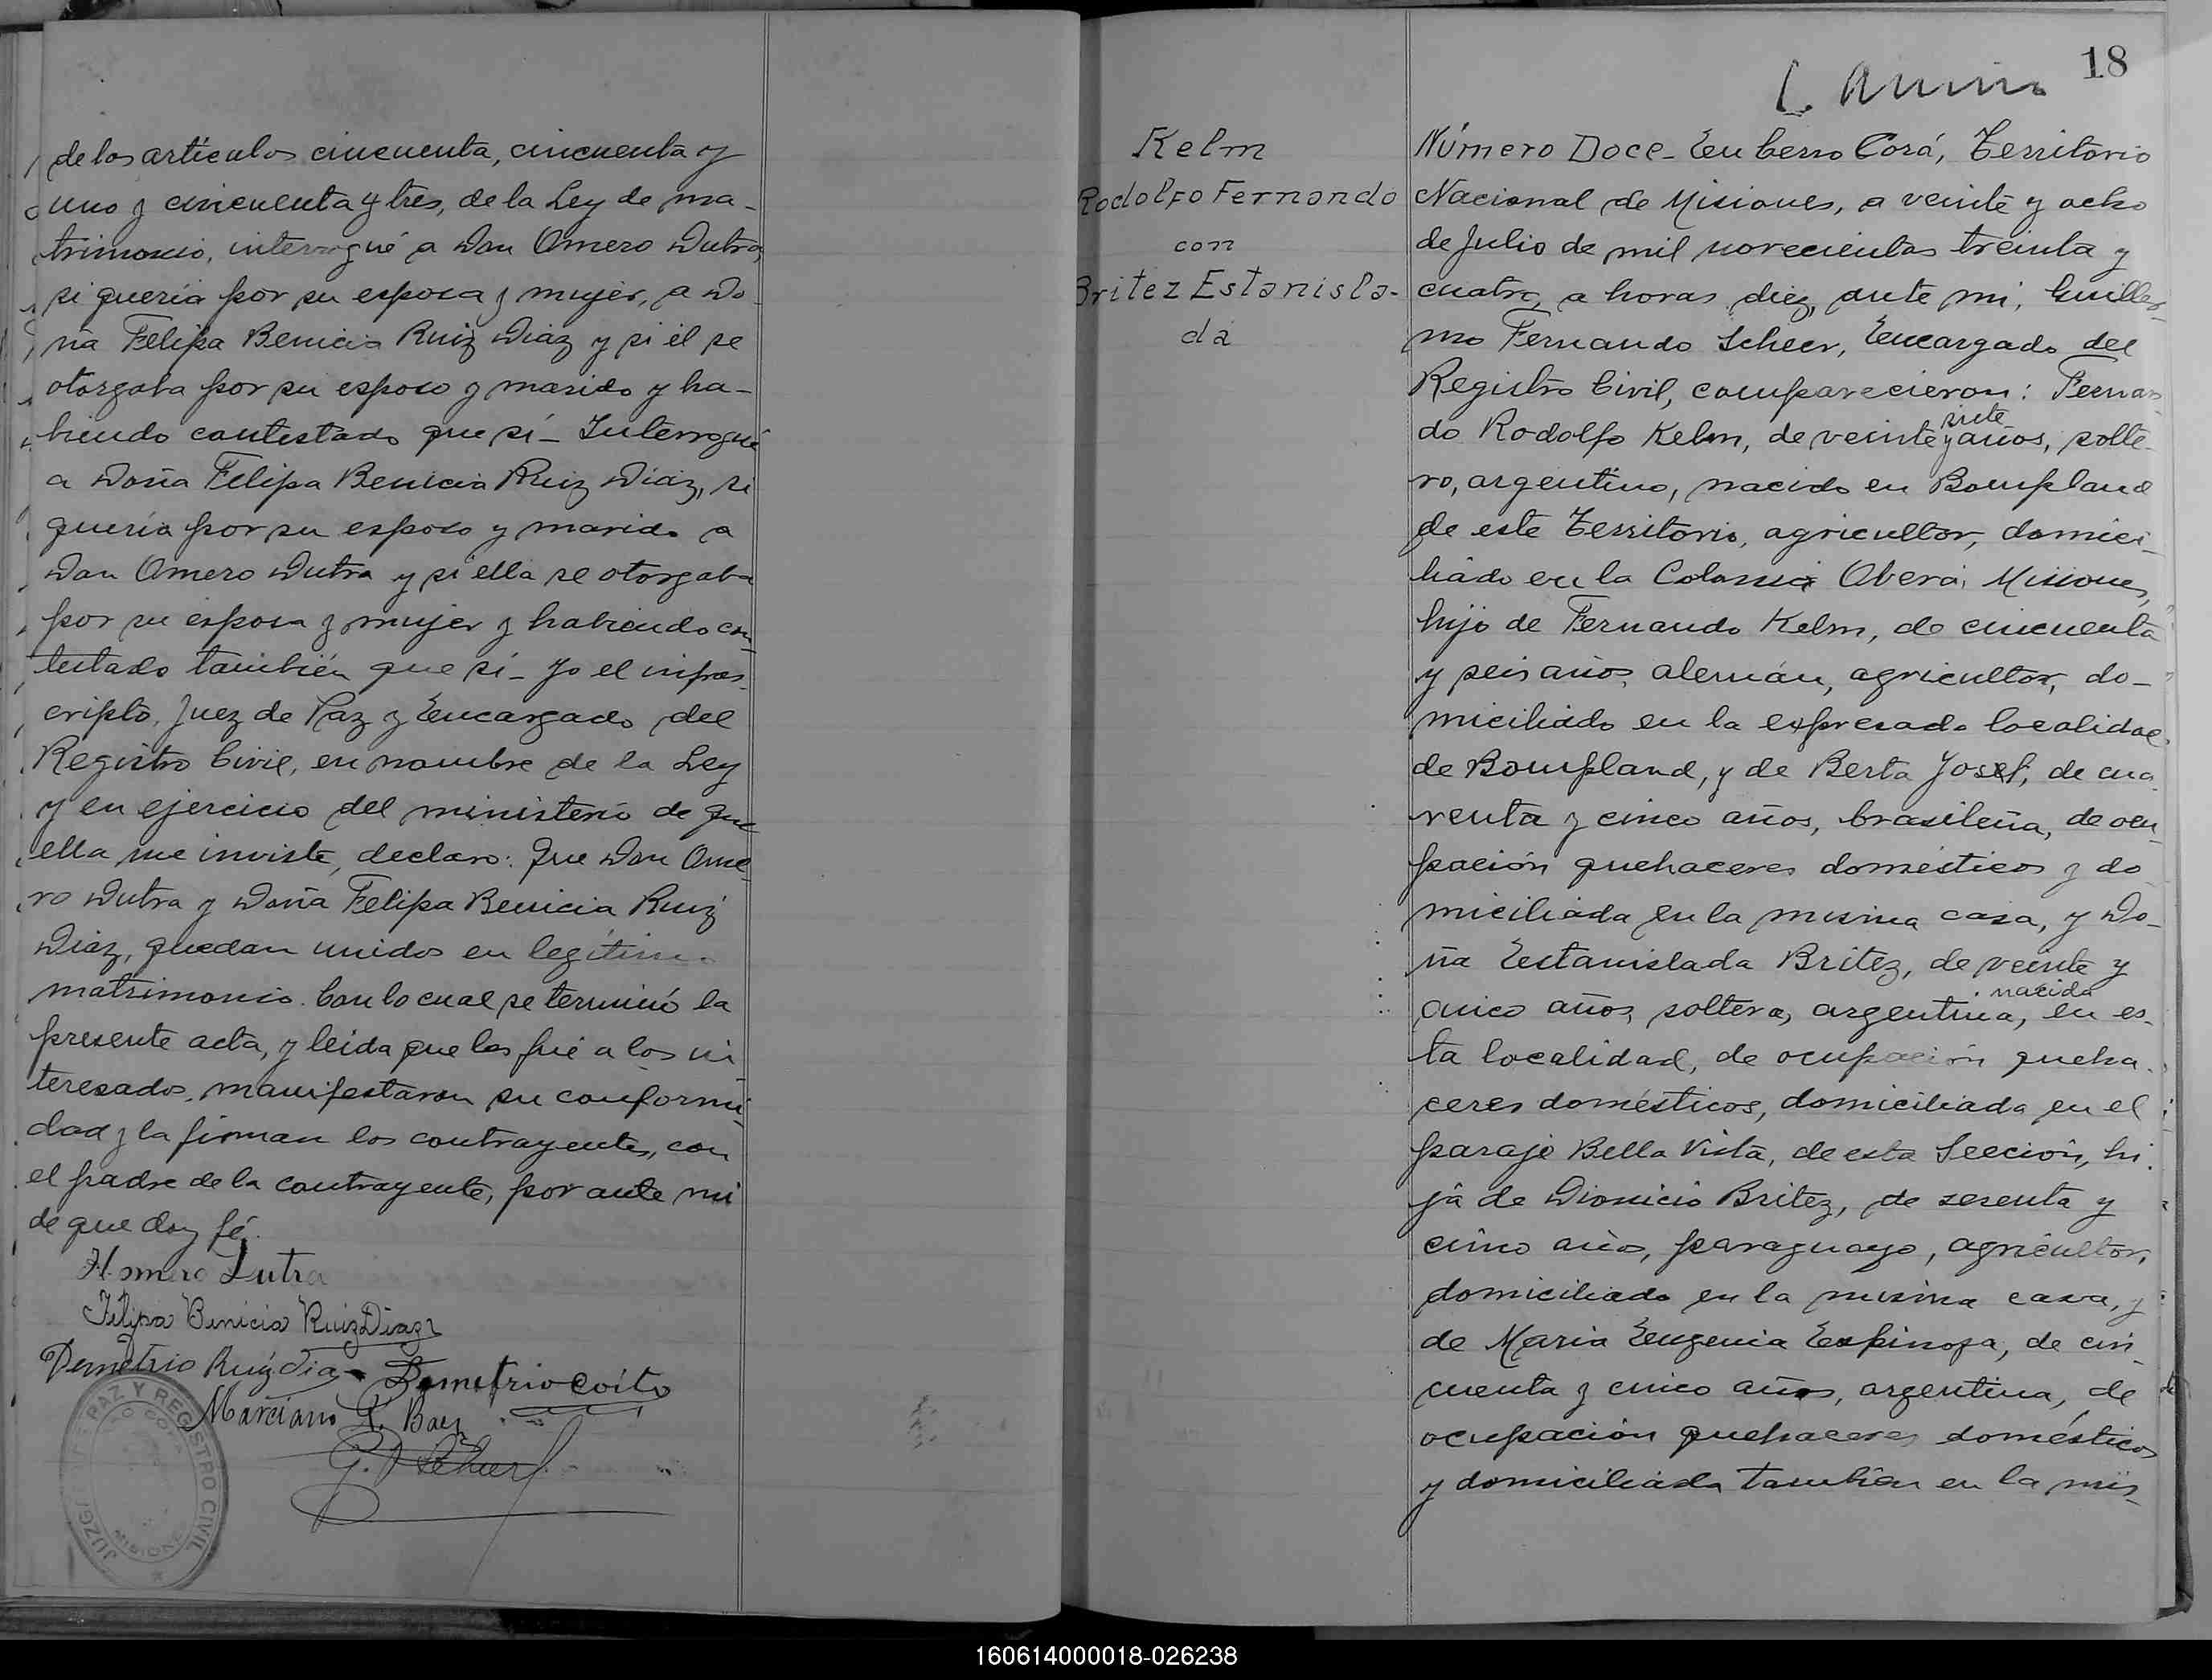 de los artículos cincuenta, cincuenta y
uno y cincuenta y tres, de la Ley de ma-
trimonio, interrogué a Don Omero Dutra,
si quería por su esposa y mujer, a Do-
ña Felipa Benicia Ruiz Diaz y si él se
otorgaba por su esposo y marido y ha-
biendo contestado que sí_ Interrogué
a Doña Felipa Benicia Ruiz Diaz, si
quería por su esposo y marido a
Don Omero Dutra y si ella se otorgaba
por su esposa y mujer y habiendo con
testado también que sí_ Yo el infras-
cripto, Juez de Paz y Encargado del
Registro Civil, en nombre de la Ley
y en ejercicio del ministerio de que
ella me inviste, declaro: Que Don Ome-
ro Dutra y Doña Felipa Benicia Ruiz
Diaz, quedan unidos en legítimo
matrimonio. Con lo cual se terminó la
presente acta, y leída que les fué a los in
teresados, manifestaron su conformi-
dad y la firman los contrayentes, con
el padre de la contrayente, por ante mí
de que doy fé.
Homero Dutra
Felipa Benicia Ruiz Diaz
Demetrio Ruiz Dia Demetrio Coito
Marciano Baez
G. F. Scheer
JUZG DE PAZ Y REGISTRO CIVIL
MISIONES
18
Kelm
Rodolfo Fernando
con
Britez Estanisla-
da
Número Doce_ En Cerro Corá, Territorio
Nacional de Misiones, a veinte y ocho
de Julio de mil novecientos treinta y
cuatro, a horas diez, ante mí, Guiller-
mo Fernando Scheer, Encargado del
Registro Civil, comparecieron: Fernan
do Rodolfo Kelm, de veinte y siete años, solte-
ro, argentino, nacido en Bompland
de este Territorio, agricultor, domici-
liado en la Colonia Oberá, Misiones,
hijo de Fernando Kelm, de cincuenta
y seis años, alemán, agricultor, do-
miciliado en la expresada localidad
de Bompland, y de Berta Josef, de cua
renta y cinco años, brasileña, de ocu
pación quehaceres domésticos y do
miciliada en la misma casa, y Do-
ña Estanislada Britez, de veinte y
cinco años, soltera, argentina, nacida en es-
ta localidad, de ocupación queha-
ceres domésticos, domiciliada en el
paraje Bella Vista, de esta Sección, hi-
ja de Dionicio Britez, de sesenta y
cinco años, paraguayo, agricultor,
domiciliado en la misma casa, y
de Maria Eugenia Espinosa, de cin-
cuenta y cinco años, argentina, de
ocupación quehaceres domésticos
y domiciliada también en la mis-
160614000018-026238